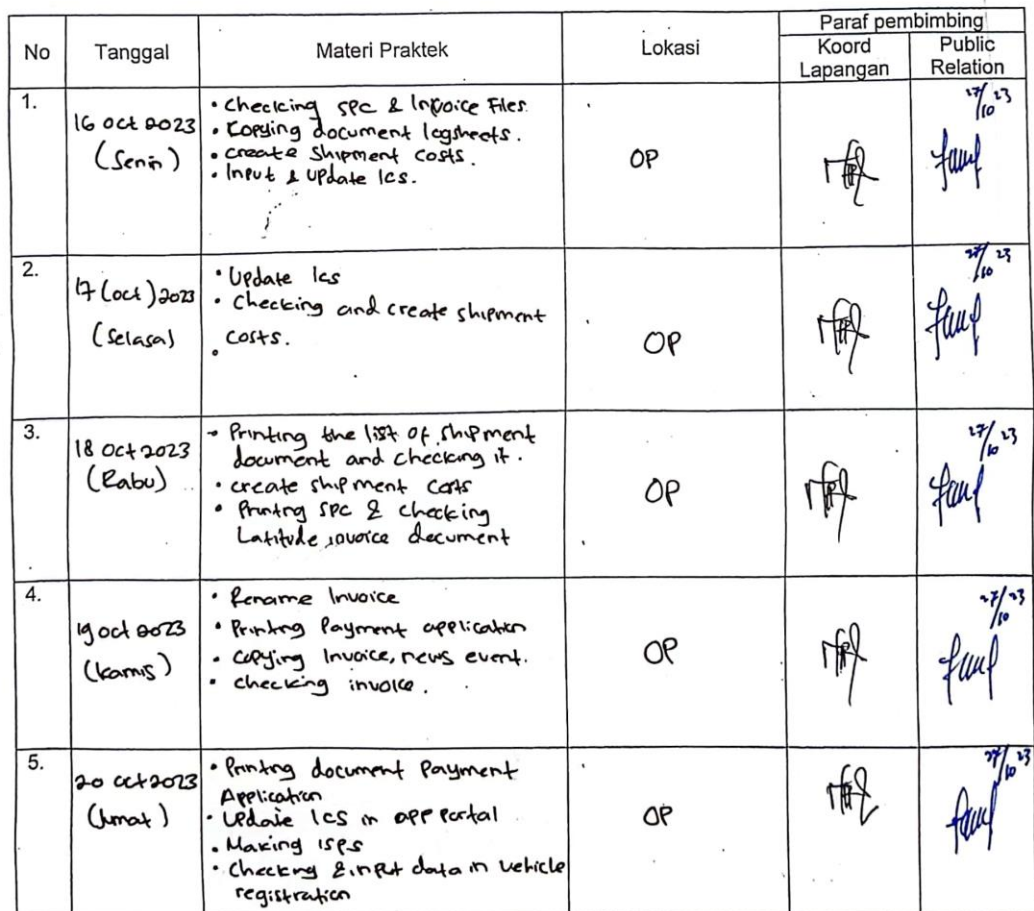 No Tanggal Materi Praktek Lokasi Paraf pembimbing
Koord Lapangan Public Relation
1.
16 oct 2023
(Senin)
• Checking SPC & Invoice Files.
• Copying document logsheets.
• create Shipment Costs.
• Input & Update Ics.
OP
27/10 23
2.
17 (oct) 2023
(Selasa)
• Update Ics
• Checking and create shipment
costs.
•
OP
27/10 23
3.
18 Oct 2023
(Rabu)
• Printing the list of shipment
document and checking it.
• create shipment costs
• Printng SPC & checking
Latitude invoice document
OP
27/10 23
4.
19 oct 2023
(kamis)
• Rename Invoice
• Printng Payment application
• copying Invoice, news event.
• checking invoice.
OP
27/10 23
5.
20 oct 2023
(Jumat)
• Printng document Payment
Application
• Update Ics in app portal
• Making ISPS
• Checkng & input data in vehicle
registration
OP
27/10 23